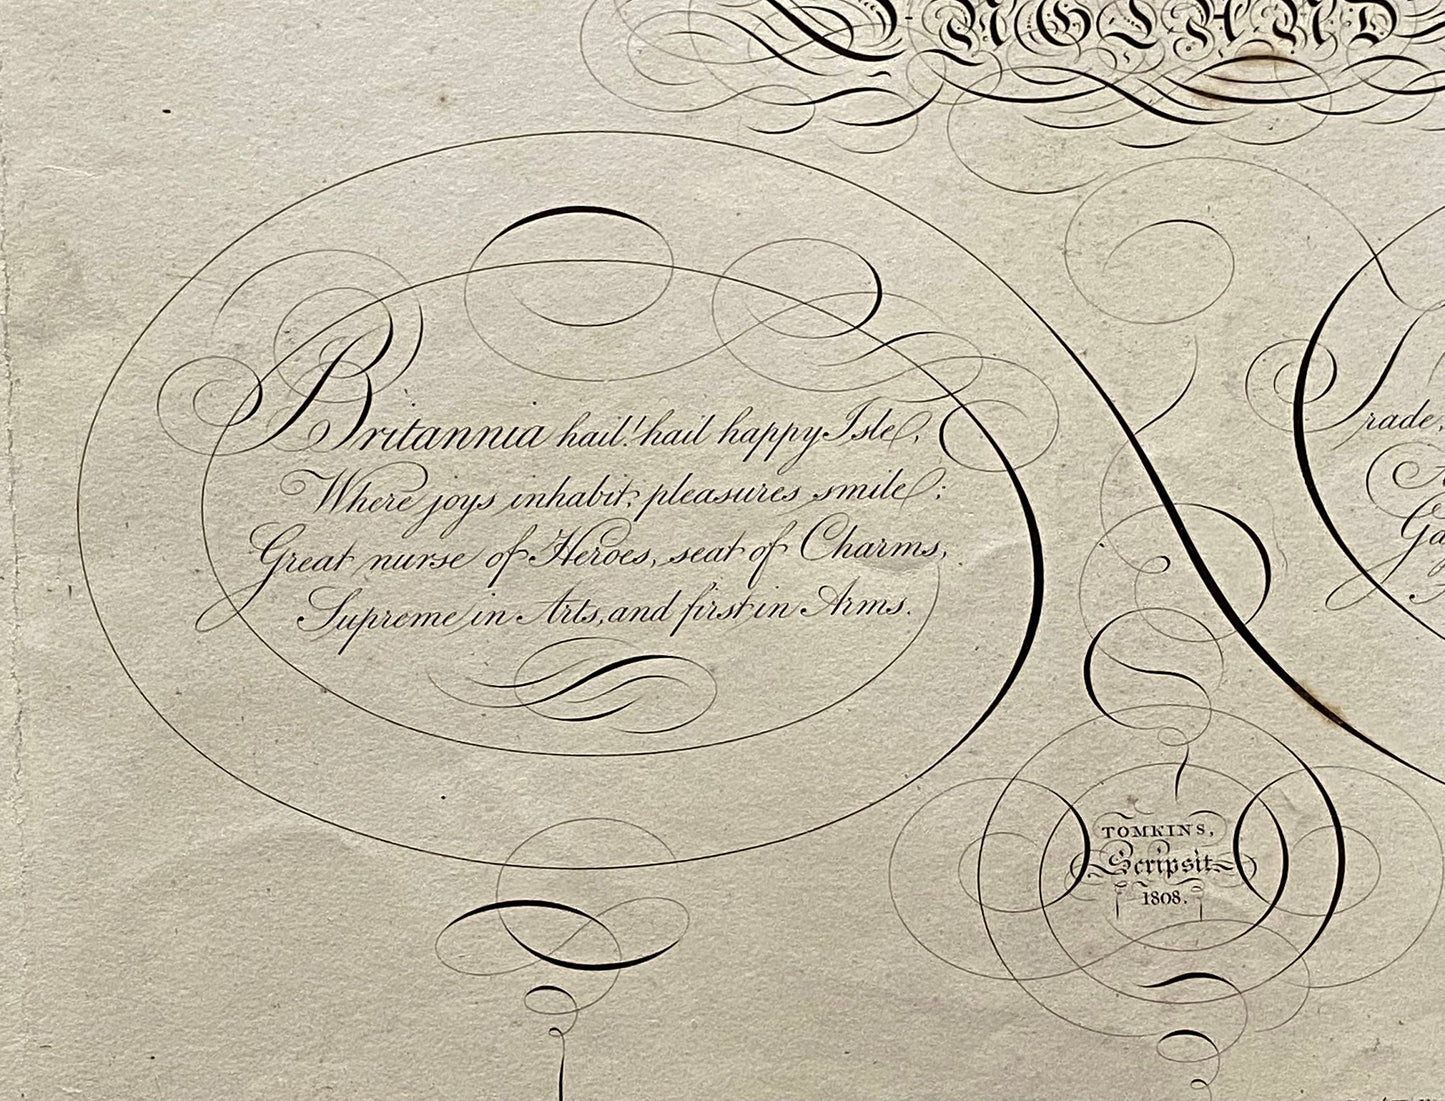 ENGLAND
Britannia hail! hail happy Isle,
Where joys inhabit, pleasures smile;
Great nurse of Heroes, seat of Charms,
Supreme in Arts, and first in Arms.
Trade,
TOMKINS,
Scripsit
1808.